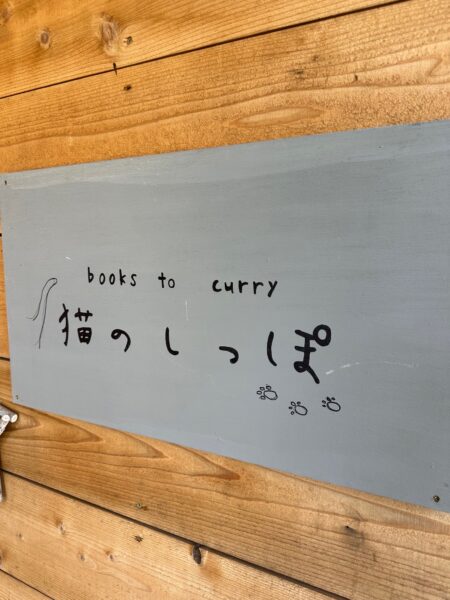 books to curry
猫のしっぽ